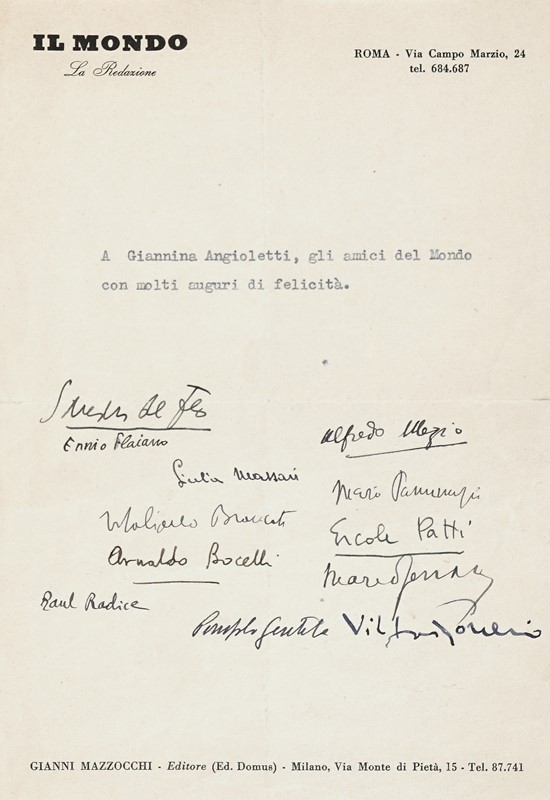 IL MONDO
La Redazione
ROMA - Via Campo Marzio, 24
tel. 684.687
A Giannina Angioletti, gli amici del Mondo
con molti auguri di felicità.
Sandro de Feo
Ennio Flaiano
Alfredo Mezio
Giulia Massari
Mario Pannunzio
Vitaliano Brancati
Ercole Patti
Arnaldo Bocelli
Raul Radice
GIANNI MAZZOCCHI - Editore (Ed. Domus) - Milano, Via Monte di Pietà, 15 - Tel. 87.741